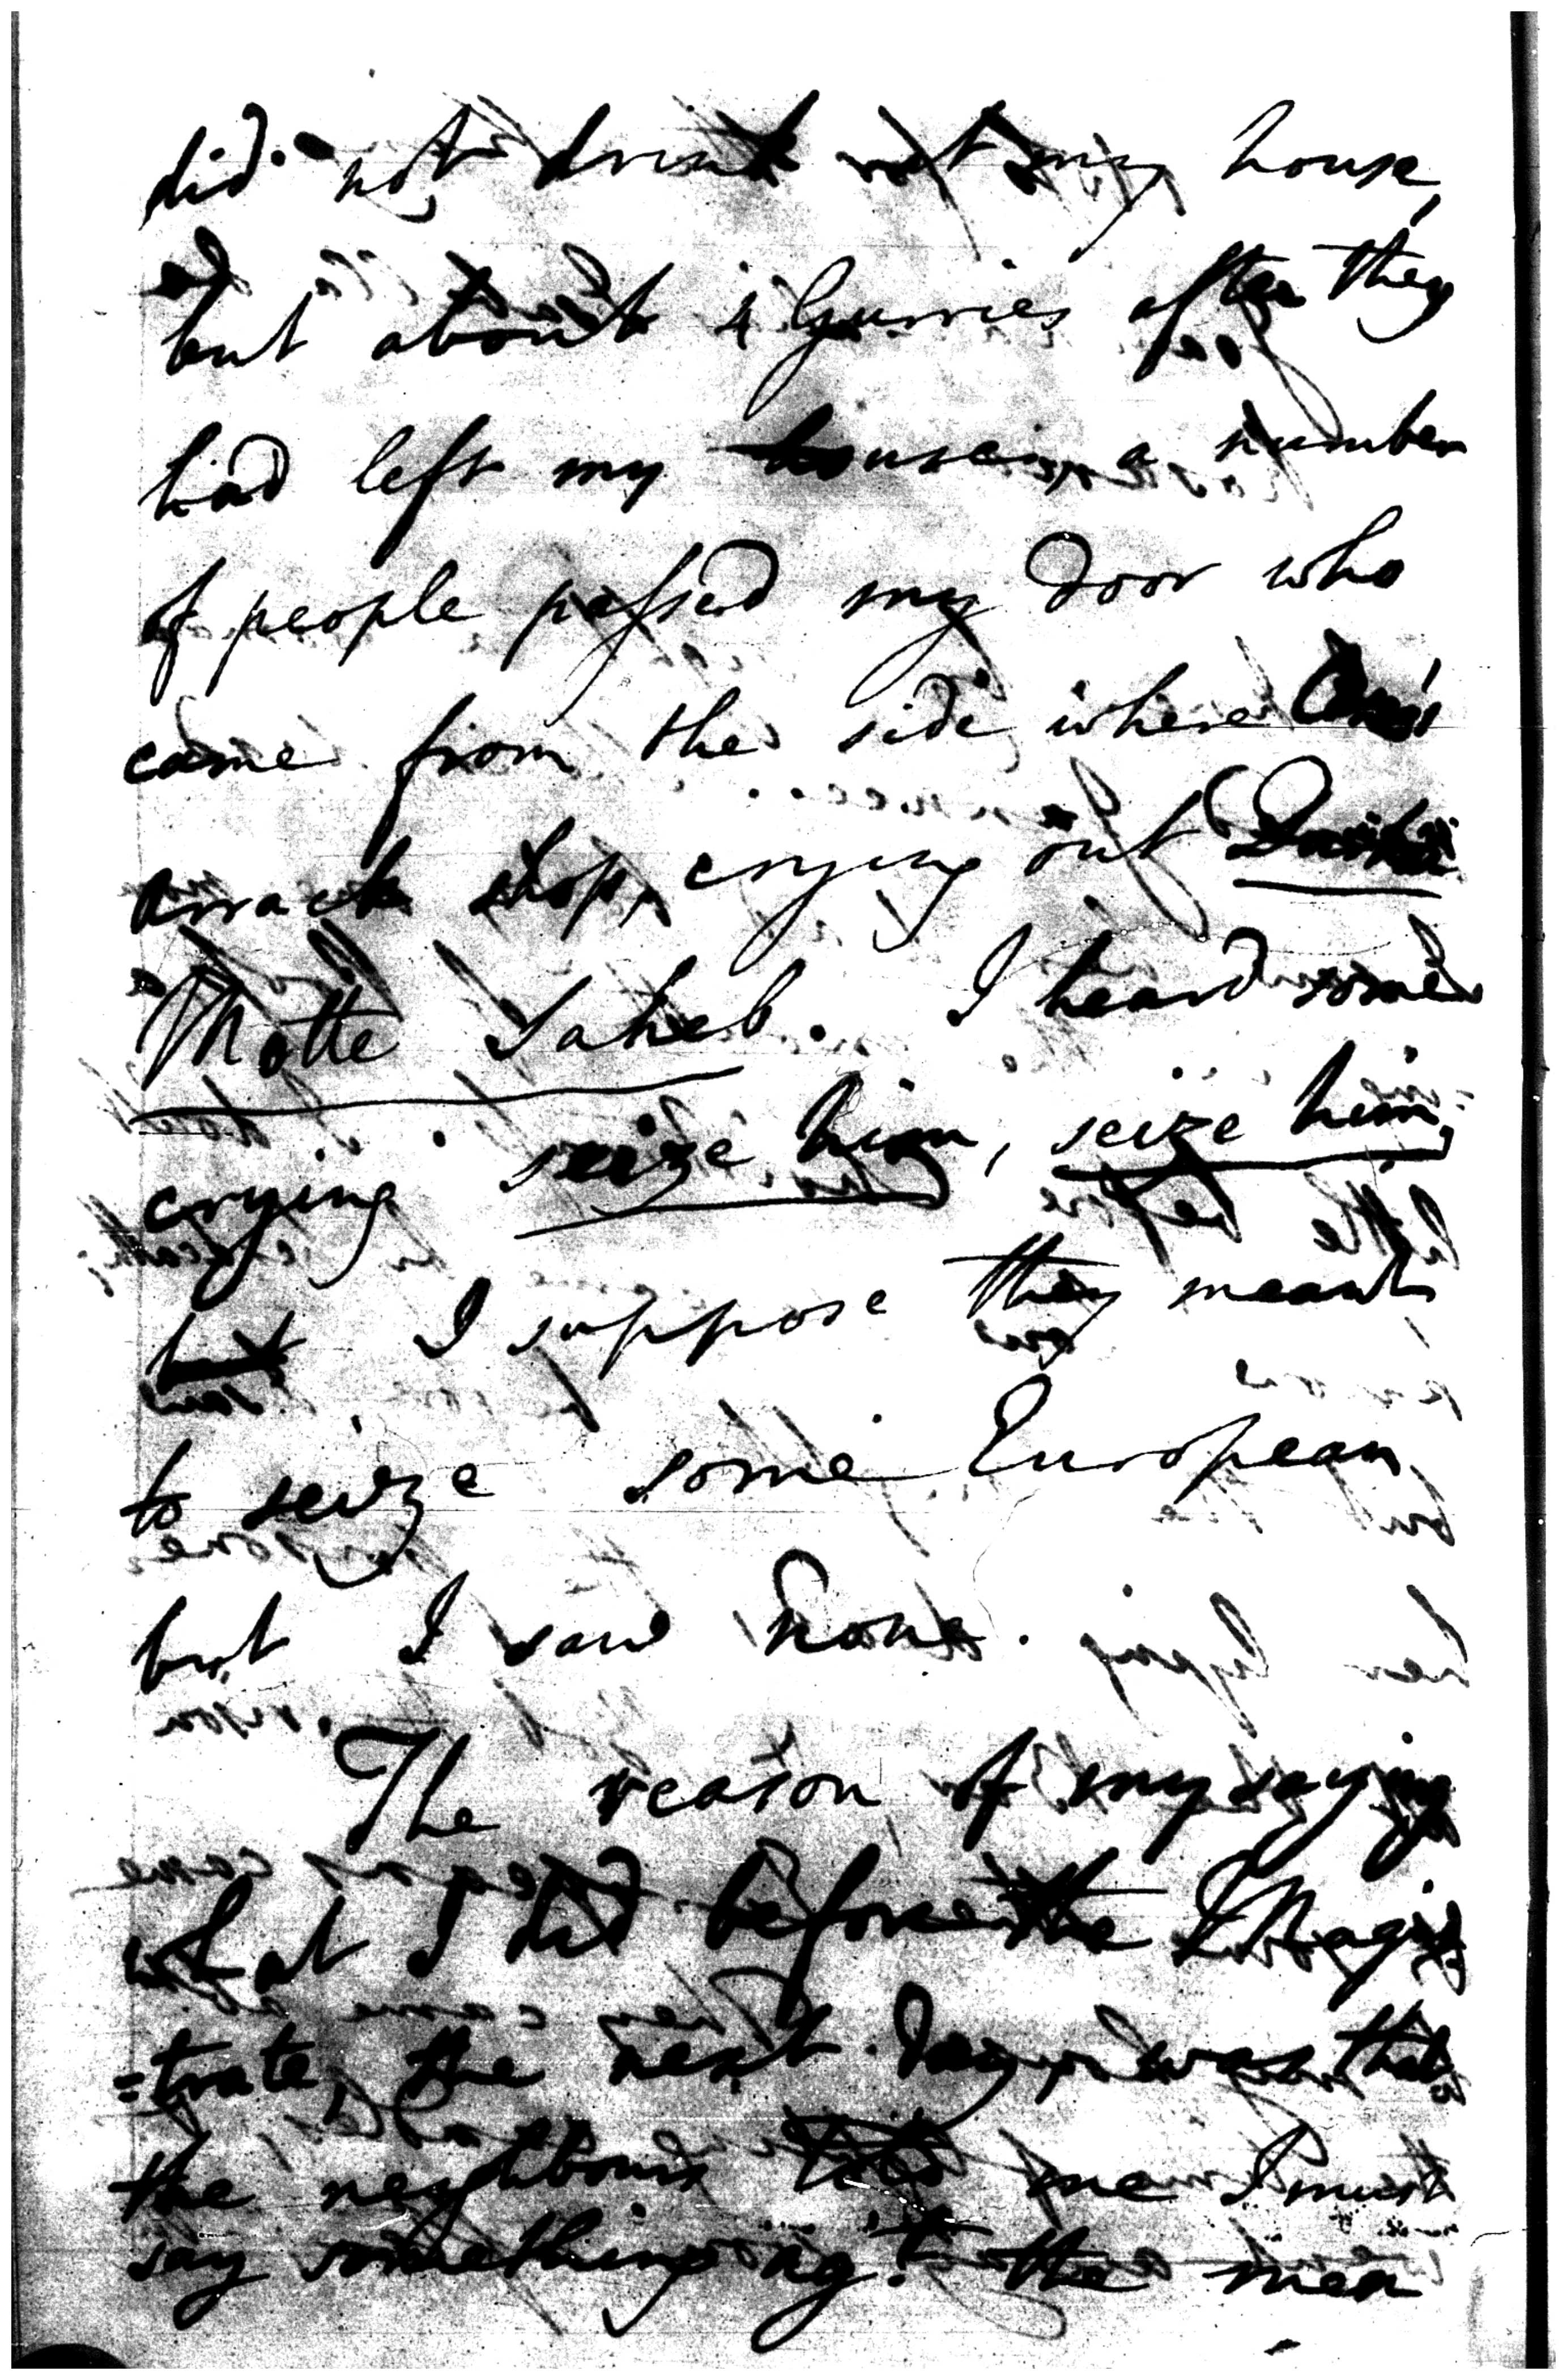 did not drink at my house,
but about 4 Gurries after they
had left my house, a number
of people passed my door who
came from the side where
arrack shop, crying out
Motte Saheb. I heard some
crying seize him, seize him,
but I suppose they meant
to seize some European
but I saw none.
The reason of my saying
what I did before the Magis
=trate, the next day, was that
the neighbours told me I must
say something agt. the men